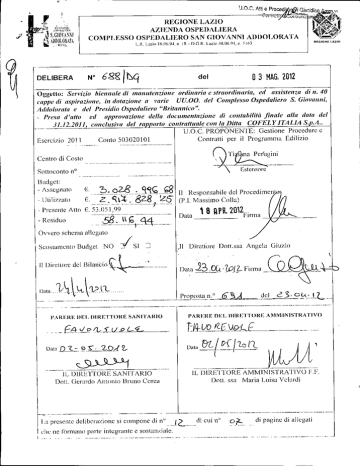 U.O.C. Atti e Procedure di Giustizia
REGIONE LAZIO
AZIENDA OSPEDALIERA
COMPLESSO OSPEDALIERO SAN GIOVANNI ADDOLORATA
S. GIOVANNI
ADDOLORATA
DELIBERA N° 688/DG del 03 MAG. 2012
Oggetto: Servizio biennale di manutenzione ordinaria e straordinaria, ed assistenza di n. 40
cappe di aspirazione, in dotazione a varie UU.OO. del Complesso Ospedaliero S. Giovanni,
Addolorata e del Presidio Ospedaliero "Britannico".
- Presa d'atto ed approvazione della documentazione di contabilità finale alla data del
31.12.2011, conclusiva del rapporto contrattuale con la Ditta COFELY ITALIA S.p.A..
Esercizio 2011 Conto 503020101
Centro di Costo
Sottoconto n°
Budget:
- Assegnato € 3.028.996,68
- Utilizzato € 2.917.828,25
- Presente Atto € 53.051,99
- Residuo 58.116,44
Ovvero schema allegato
Scostamento Budget NO SI
Il Direttore del Bilancio
Data 24/4/2012
U.O.C. PROPONENTE: Gestione Procedure e
Contratti per il Programma Edilizio
Tiziana Perugini
Estensore
Il Responsabile del Procedimento
(P.I. Massimo Colla)
Data 18 APR. 2012 Firma
Il Direttore Dott.ssa Angela Giuzio
Data 23.04.2012 Firma
Proposta n.° 691 del 23.04.12
PARERE DEL DIRETTORE SANITARIO
FAVOREVOLE
Data 02-05-2012
IL DIRETTORE SANITARIO
Dott. Gerardo Antonio Bruno Corea
PARERE DEL DIRETTORE AMMINISTRATIVO
FAVOREVOLE
Data 02/05/2012
IL DIRETTORE AMMINISTRATIVO F.F.
Dott. ssa Maria Luisa Velardi
La presente deliberazione si compone di n° 12 di cui n° 07 di pagine di allegati
che ne formano parte integrante e sostanziale.